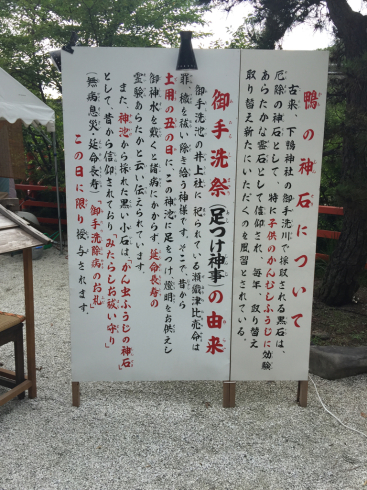 鴨の神石について
古来、下鴨神社の御手洗川で採取される黒石は、
厄除の神石として、特に子供のかんむしふうじに効験
あらたかな霊石として信仰され、毎年、取り替え
取り替え新たにいただくのを風習とされている。
御手洗祭(足つけ神事)の由来
御手洗池の井上社に祀られてる瀬織津比売命は
罪、穢を祓い除き給う神様です。そこで、昔から
土用の丑の日に、この神池に足をつけ燈明をお供えし
御神水を戴くと諸病にかからず、延命長寿の
霊験あらたかと云い伝えられています。
また、神池から採れた黒い小石は、「かん虫ふうじの神石」
として、昔から信仰されており「みたらしお祓い守り」
(無病息災・延命長寿)「御手洗除病のお札」
この日に限り授与されます。